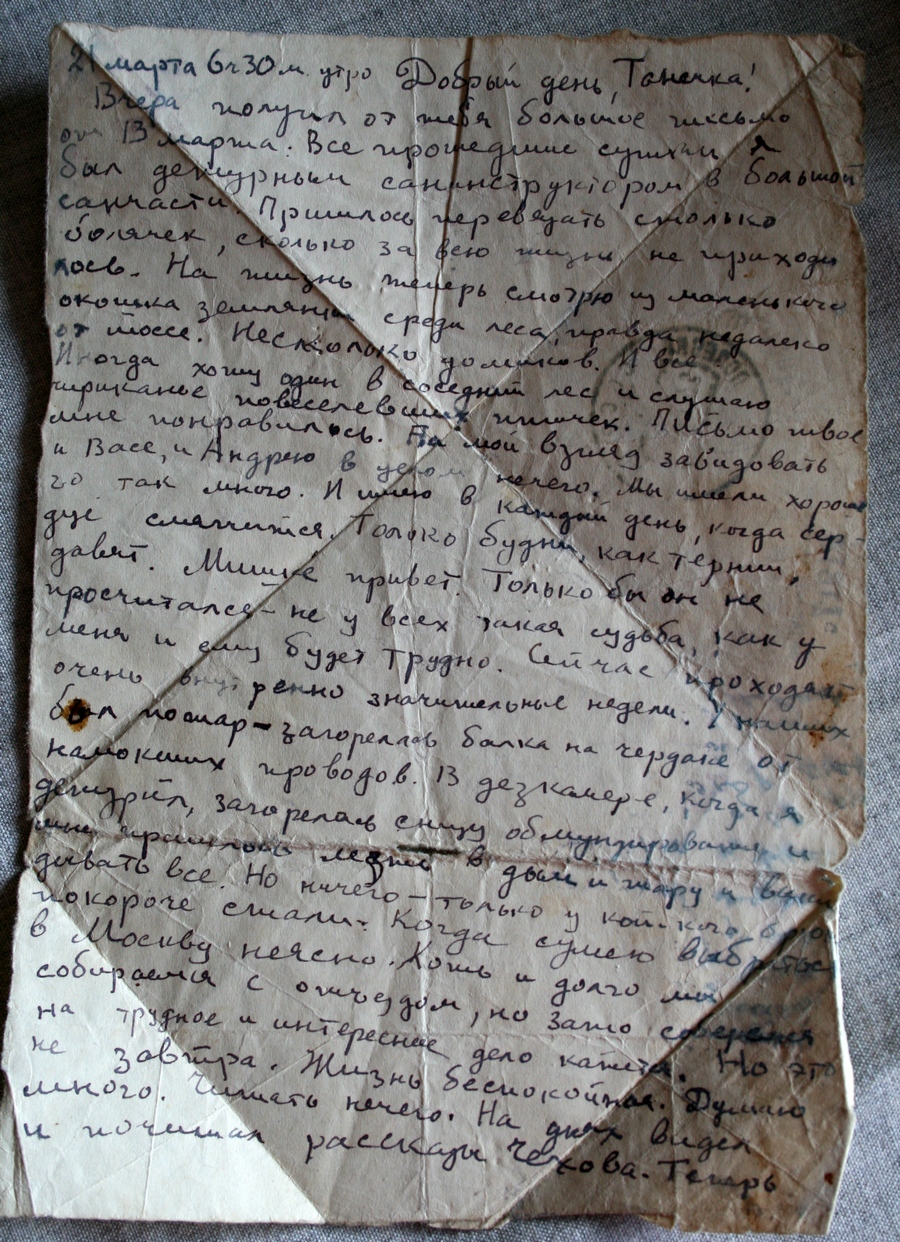 21 марта 6ч30м. утро Добрый день, Танечка!
Вчера получил от тебя большое письмо
от 13 марта. Все прошедшие сутки я
был дежурным санинструктором в большой
санчасти. Пришлось перевязать столько
болячек, сколько за всю жизнь не приходи
лось. На жизнь теперь смотрю из маленького
окошка землянки среди леса, правда недалеко
от шоссе. Несколько домиков. И все
Иногда хожу один в соседний лес и слушаю
чириканье повеселевших птичек. Письмо твое
мне понравилось. На мой взгляд завидовать
и Васе, и Андрею в целом нечего. Мы имели хороше
го так много. И имею в каждый день, когда сер-
дце смягчится. Только будни, как тернии,
давят. Мишке привет. Только бы он не
просчитался – не у всех такая судьба, как у
меня и ему будет трудно. Сейчас проходят
очень внутренно значительные недели. У наших
был пожар – загорелась балка на чердаке от
намокших проводов. В дезкамере, когда я
дежурил, загорелась снизу обмундирование и
мне пришлось лезть в дым и жару и выки
дывать все. Но ничего – только у кой кого брюки
покороче стали. Когда сумею выбраться
в Москву неясно. Хоть и долго мы
собираемся с отъездом, но зато соберемся
на трудное и интересное дело кажется. Но это
не завтра. Жизнь беспокойная. Думаю
много. Читать нечего. На днях видел
и почитал рассказы Чехова. Теперь